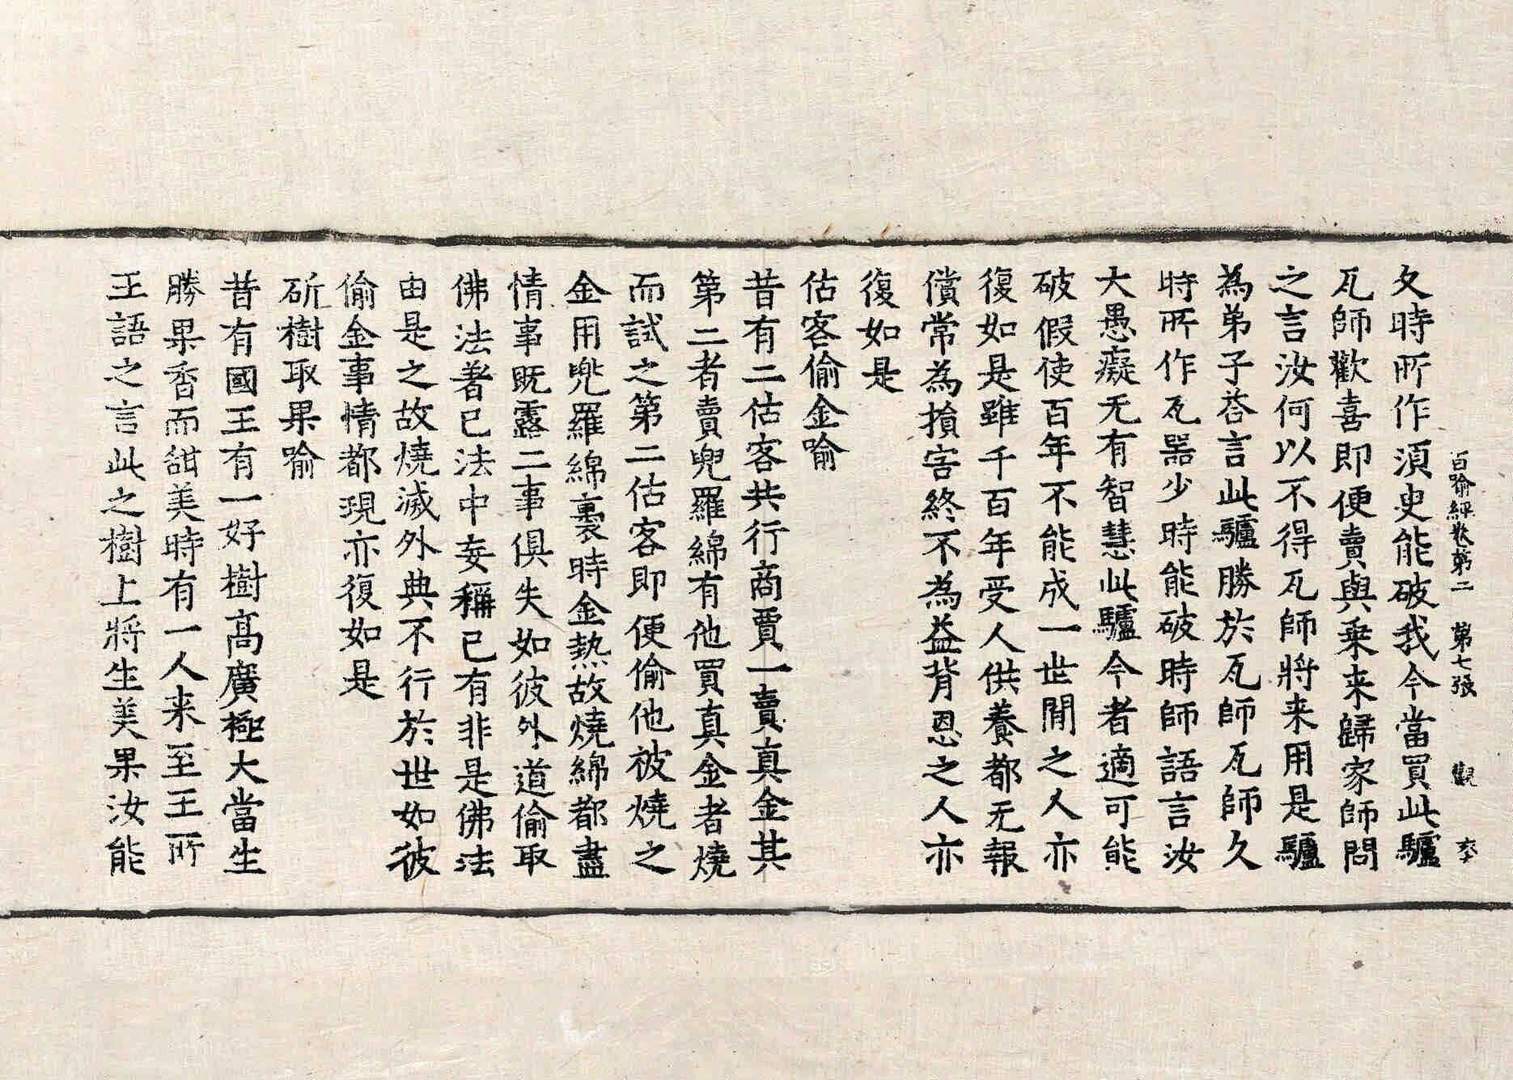 百喻經卷第二　第七張　觀
久時所作須臾能破我今當買此驢
瓦師歡喜即便賣與乗来歸家師問
之言汝何以不得瓦師將来用是驢
為弟子荅言此驢勝於瓦師瓦師久
時所作瓦器少時能破時師語言汝
大愚癡无有智慧此驢今者適可能
破假使百年不能成一世間之人亦
復如是雖千百年受人供養都无報
償常為損害終不為益背恩之人亦
復如是
估客偷金喻
昔有二估客共行商賈一賣真金其
第二者賣兜羅綿有他買真金者燒
而試之第二估客即便偷他被燒之
金用兜羅綿裹時金熱故燒綿都盡
情事既露二事俱失如彼外道偷取
佛法著已法中妄稱已有非是佛法
由是之故燒滅外典不行於世如彼
偷金事情都現亦復如是
斫樹取果喻
昔有國王有一好樹髙廣極大當生
勝果香而甜美時有一人来至王所
王語之言此之樹上將生美果汝能